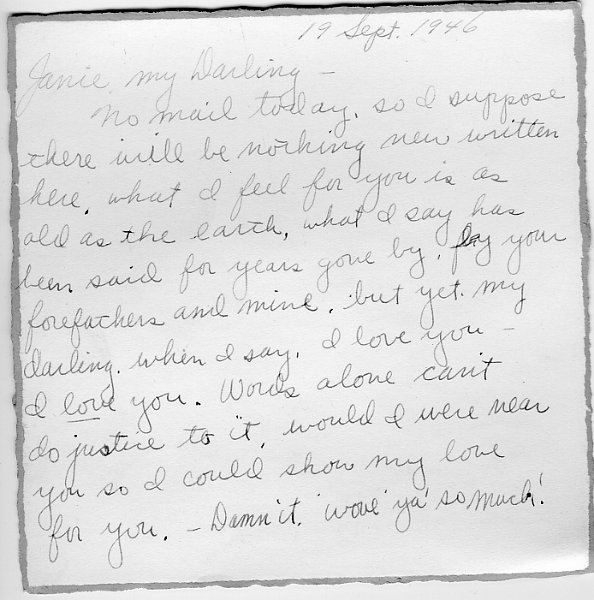 19 Sept. 1946
Janie, my Darling –
No mail today, so I suppose
there will be nothing new written
here, what I feel for you is as
old as the earth, what I say has
been said for years gone by, by your
forefathers and mine, but yet my
darling, when I say, I love you –
I love you. Words alone can't
do justice to it, would I were near
you so I could show my love
for you. – Damn it, 'wove' ya' so much!